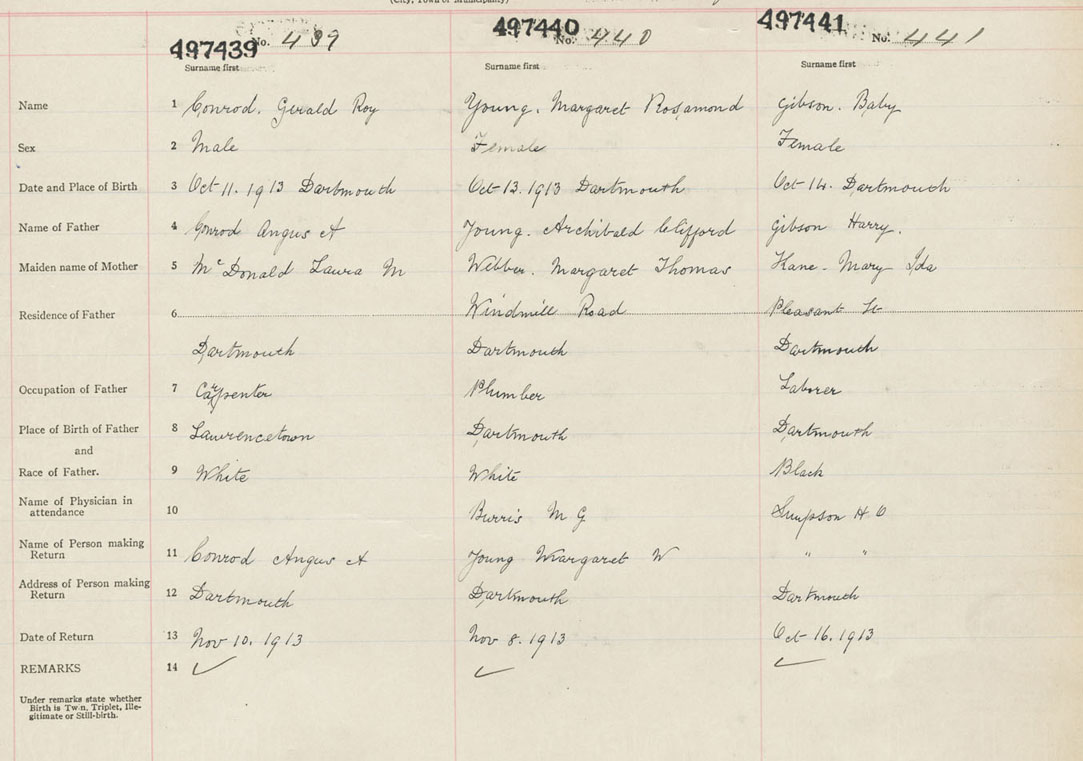 (City, Town or Municipality)
497439 No. 439 497440 No. 440 497441 No. 441
Surname first Surname first Surname first
Name 1 Conrod. Gerald Roy Young. Margaret Rosamond Gibson. Baby
Sex 2 Male Female Female
Date and Place of Birth 3 Oct 11. 1913 Dartmouth Oct 13. 1913 Dartmouth Oct 14. Dartmouth
Name of Father 4 Conrod Angus A Young. Archibald Clifford Gibson Harry.
Maiden name of Mother 5 Mc Donald Laura M Webber. Margaret Thomas Kane. Mary Ida
Residence of Father 6 Windmill Road Pleasant St
Dartmouth Dartmouth Dartmouth
Occupation of Father 7 Carpenter Plumber Laborer
Place of Birth of Father 8 Lawrencetown Dartmouth Dartmouth
and
Race of Father. 9 White White Black
Name of Physician in
attendance 10 Burris M G Simpson H O
Name of Person making
Return 11 Conrod Angus A Young Margaret W " "
Address of Person making
Return 12 Dartmouth Dartmouth Dartmouth
Date of Return 13 Nov 10. 1913 Nov 8. 1913 Oct 16. 1913
REMARKS 14 ✓ ✓ ✓
Under remarks state whether
Birth is Twin, Triplet, Ille-
gitimate or Still-birth.